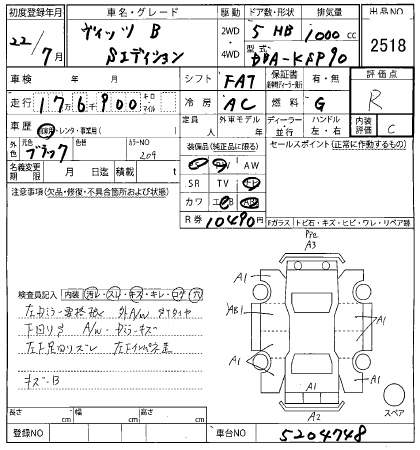 初度登録年月 車名・グレード 駆動 ドア数・形状 排気量 出品NO
22/7月 ヴィッツ B Sエディション 2WD 4WD 5 HB 1000 cc 2518
型式 DBA-KSP90
車検 年 月 シフト FA7 保証書 有・無 評価点
走行 176900 キロ マイル 冷房 AC 燃料 G R
車歴 自家用・レンタ・事業用( ) 定員 人 外車モデル 年 ディーラー 並行 ハンドル 左・右 内装評価 C
外色 元色 ブラック 色替 カラーNO 209 装備品(純正品に限る) セールスポイント(正常に作動するもの)
PS PW AW
名義変更期限 月 日迄 積載 t SR TV ナビ
カワ エアB AB
注意事項(欠品・修復・不具合箇所および状態) R券 10490円
Fガラス トビ石・キズ・ヒビ・ワレ・リペア跡
A3
A1 A1
検査員記入 内装 汚レ・スレ・キズ・キレ・コゲ・穴
AB1 A1
下回りサ A/W
A1 A1
A1
キズ・B
A1
A2
スペア
長さ cm 幅 cm 高さ cm
登録NO 車台NO 5204748